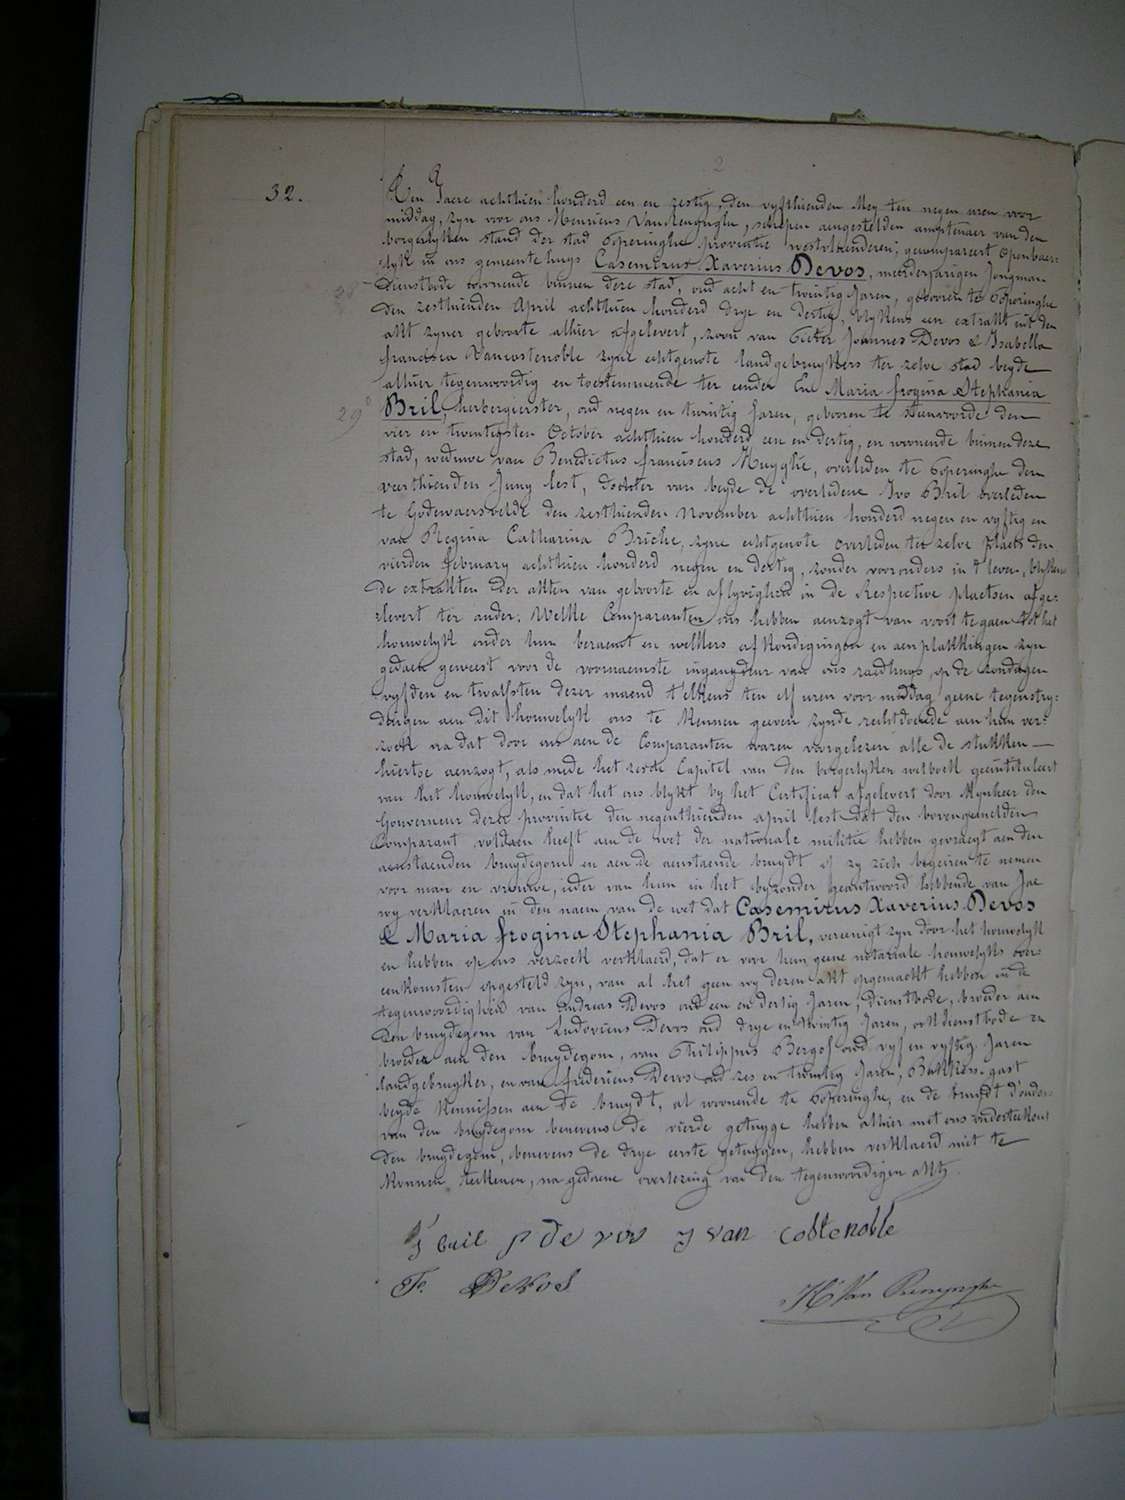 32.
Den Jaere achthien honderd een en zestig, den vyfthienden Mey ten negen uren voor
middag, zyn voor ons Henricus Vanrenynghe, schepen aengestelden amptenaer van den
borgerlyken stand der stad Poperinghe provintie westvlaenderen; gecompareert openbaer-
lyk in ons gemeente huys Casemirus Xaverius Devos, meerderjarigen Jongman
28
dienstbode woonende binnen deze stad, oud acht en twintig Jaren, gebooren te Poperinghe
den zesthienden April achthien honderd drye en dertig, blykens een extrakt uit den
akt zyner geboorte alhier afgelevert, zoon van Pieter Joannes Devos & Isabella
francisca Vancostenoble zyne echtgenote landgebruykers ter zelve stad beyde
alhier tegenwoordig en toestemmende ter eender En Maria frogina Stephania
29
Bril, herbergierster, oud negen en twintig Jaren, gebooren te Steenvoorde den
vier en twentigsten October achthien honderd een en dertig, en woonende binnen deze
stad, weduwe van Benedictus franciscus Huyghe, overleden te Poperinghe den
veerthienden Juny lest, dochter van beyde de overledene Ivo Bril overleden
te Godewaersvelde den zesthienden November achthien honderd negen en vyftig en
van Regina Catharina Briche, zyne echtgenote overleden ter zelve plaets den
vierden february achthien honderd negen en dertig, zonder voorouders in 't leven, blykens
de extrakten der akten van geboorte en aflyvigheid in de Respective plaetsen afge-
levert ter ander. Welke Comparanten ons hebben aenzogt van voort te gaen tot het
houwelyk onder hun beraemt en welkers afkondigingen en aenplakkingen zyn
gedaen geweest voor de voornaemste ingangdeur van ons raedhuys, op de zondagen
vyfden en twalfsten dezer maend t'elkens ten elf uren voor middag geene tegenstry-
digen aen dit houwelyk ons te kennen geeven zynde rechtdoende aen hun ver-
zoek na dat door ons aen de Comparanten waren voorgelezen alle de stukken
hiertoe aenzogt, als mede het zesde Capitel van den borgerlyken wetboek geentituleert
van het houwelyk, en dat het ons blykt by het Certificat afgelevert door Mynheer den
Gouverneur dezer provintie den negenthienden april lest dat den bovengemelden
Comparant voldaen heeft aen de wet der nationale militie hebben gevraegt aen den
aenstaenden bruydegom en aen de aenstaende bruydt of zy zich begeiren te nemen
voor man en vrouwe, ieder van hun in het byzonder geantwoord hebbende van Jae
wy verklaeren in den naem van de wet dat Casemirus Xaverius Devos
& Maria frogina Stephania Bril, vereenigt zyn door het houwelyk
en hebben op ons verzoek verklaerd, dat er voor hun geene notariale houwelyks over-
eenkomsten opgesteld zyn, van al het geen wy dezen akt opgemaekt hebben in de
tegenwoordigheid van Andreas Devos oud een en dertig Jaren, dienstbode, broeder aen
den bruydegom van Ludovicus Devos oud drye en twintig Jaren, ook dienstbode en
broeder aen den bruydegom, van Philippus Bergol oud vyf en vyftig Jaren
landgebruyker, en van fredericus Devos oud zes en twintig Jaren, Bakkers gast
beyde kennissen aen de bruydt, al woonende te Poperinghe, en de bruydt d'ouders
van den bruydegom benevens de vierde getuyge hebben alhier met ons onderteekent
den bruydegom, benevens de drye eerste getuygen, hebben verklaerd niet te
konnen teekenen, na gedaene overlezing van den tegenwoordigen akt.
S bril P de vos J van Costenoble
F. Devos
H. Van Renynghe